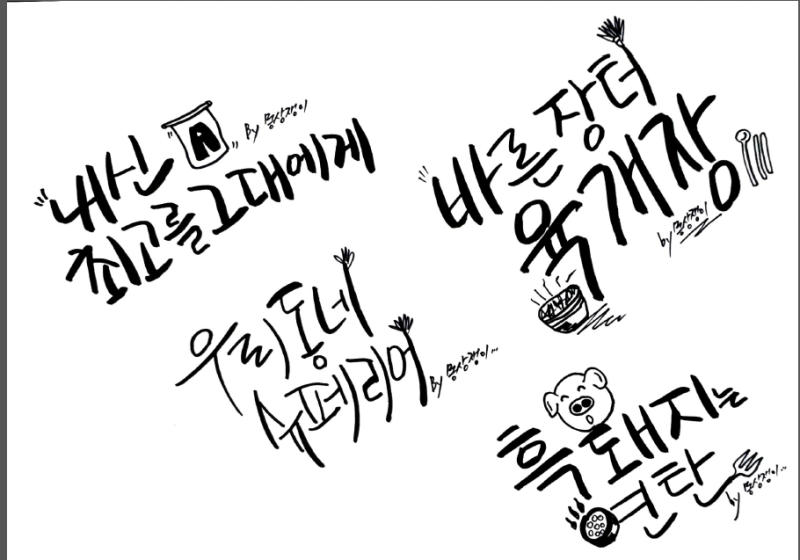 "내신 "A" By 몽상쟁이
최고를 그대에게
"바른 장터
육개장
by 몽상쟁이
우리동네
슈페리어
By 몽상쟁이...
흑돼지는
연탄
by 몽상쟁이...